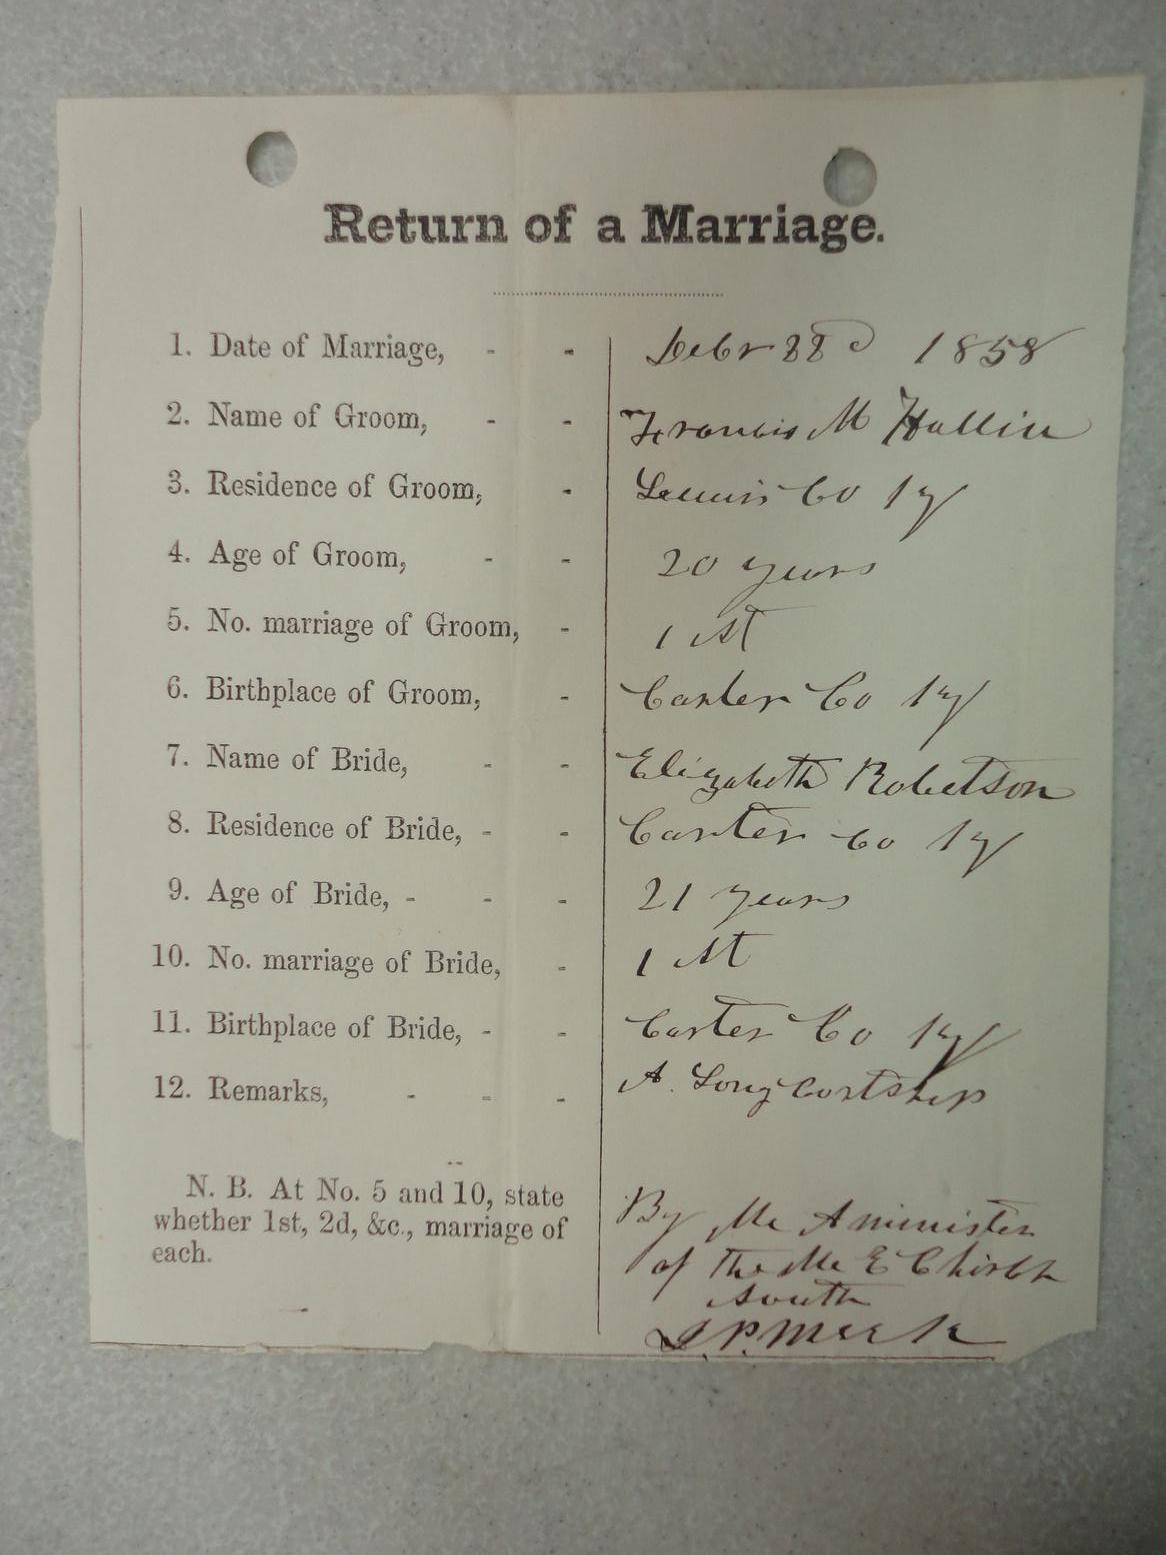 Return of a Marriage.
1. Date of Marriage, - - Debr 22d 1858
2. Name of Groom, - - Francis M Hallin
3. Residence of Groom, - Lewis Co Ky
4. Age of Groom, - - 20 years
5. No. marriage of Groom, - 1 st
6. Birthplace of Groom, - Carter Co Ky
7. Name of Bride, - - Elizabeth Robertson
8. Residence of Bride, - - Carter Co Ky
9. Age of Bride, - - - 21 years
10. No. marriage of Bride, - 1 st
11. Birthplace of Bride, - - Carter Co Ky
12. Remarks, - - - A Long Cortship
N. B. At No. 5 and 10, state
whether 1st, 2d, &c., marriage of
each.
By Me A minister
of the M E Church
South
P. Meek